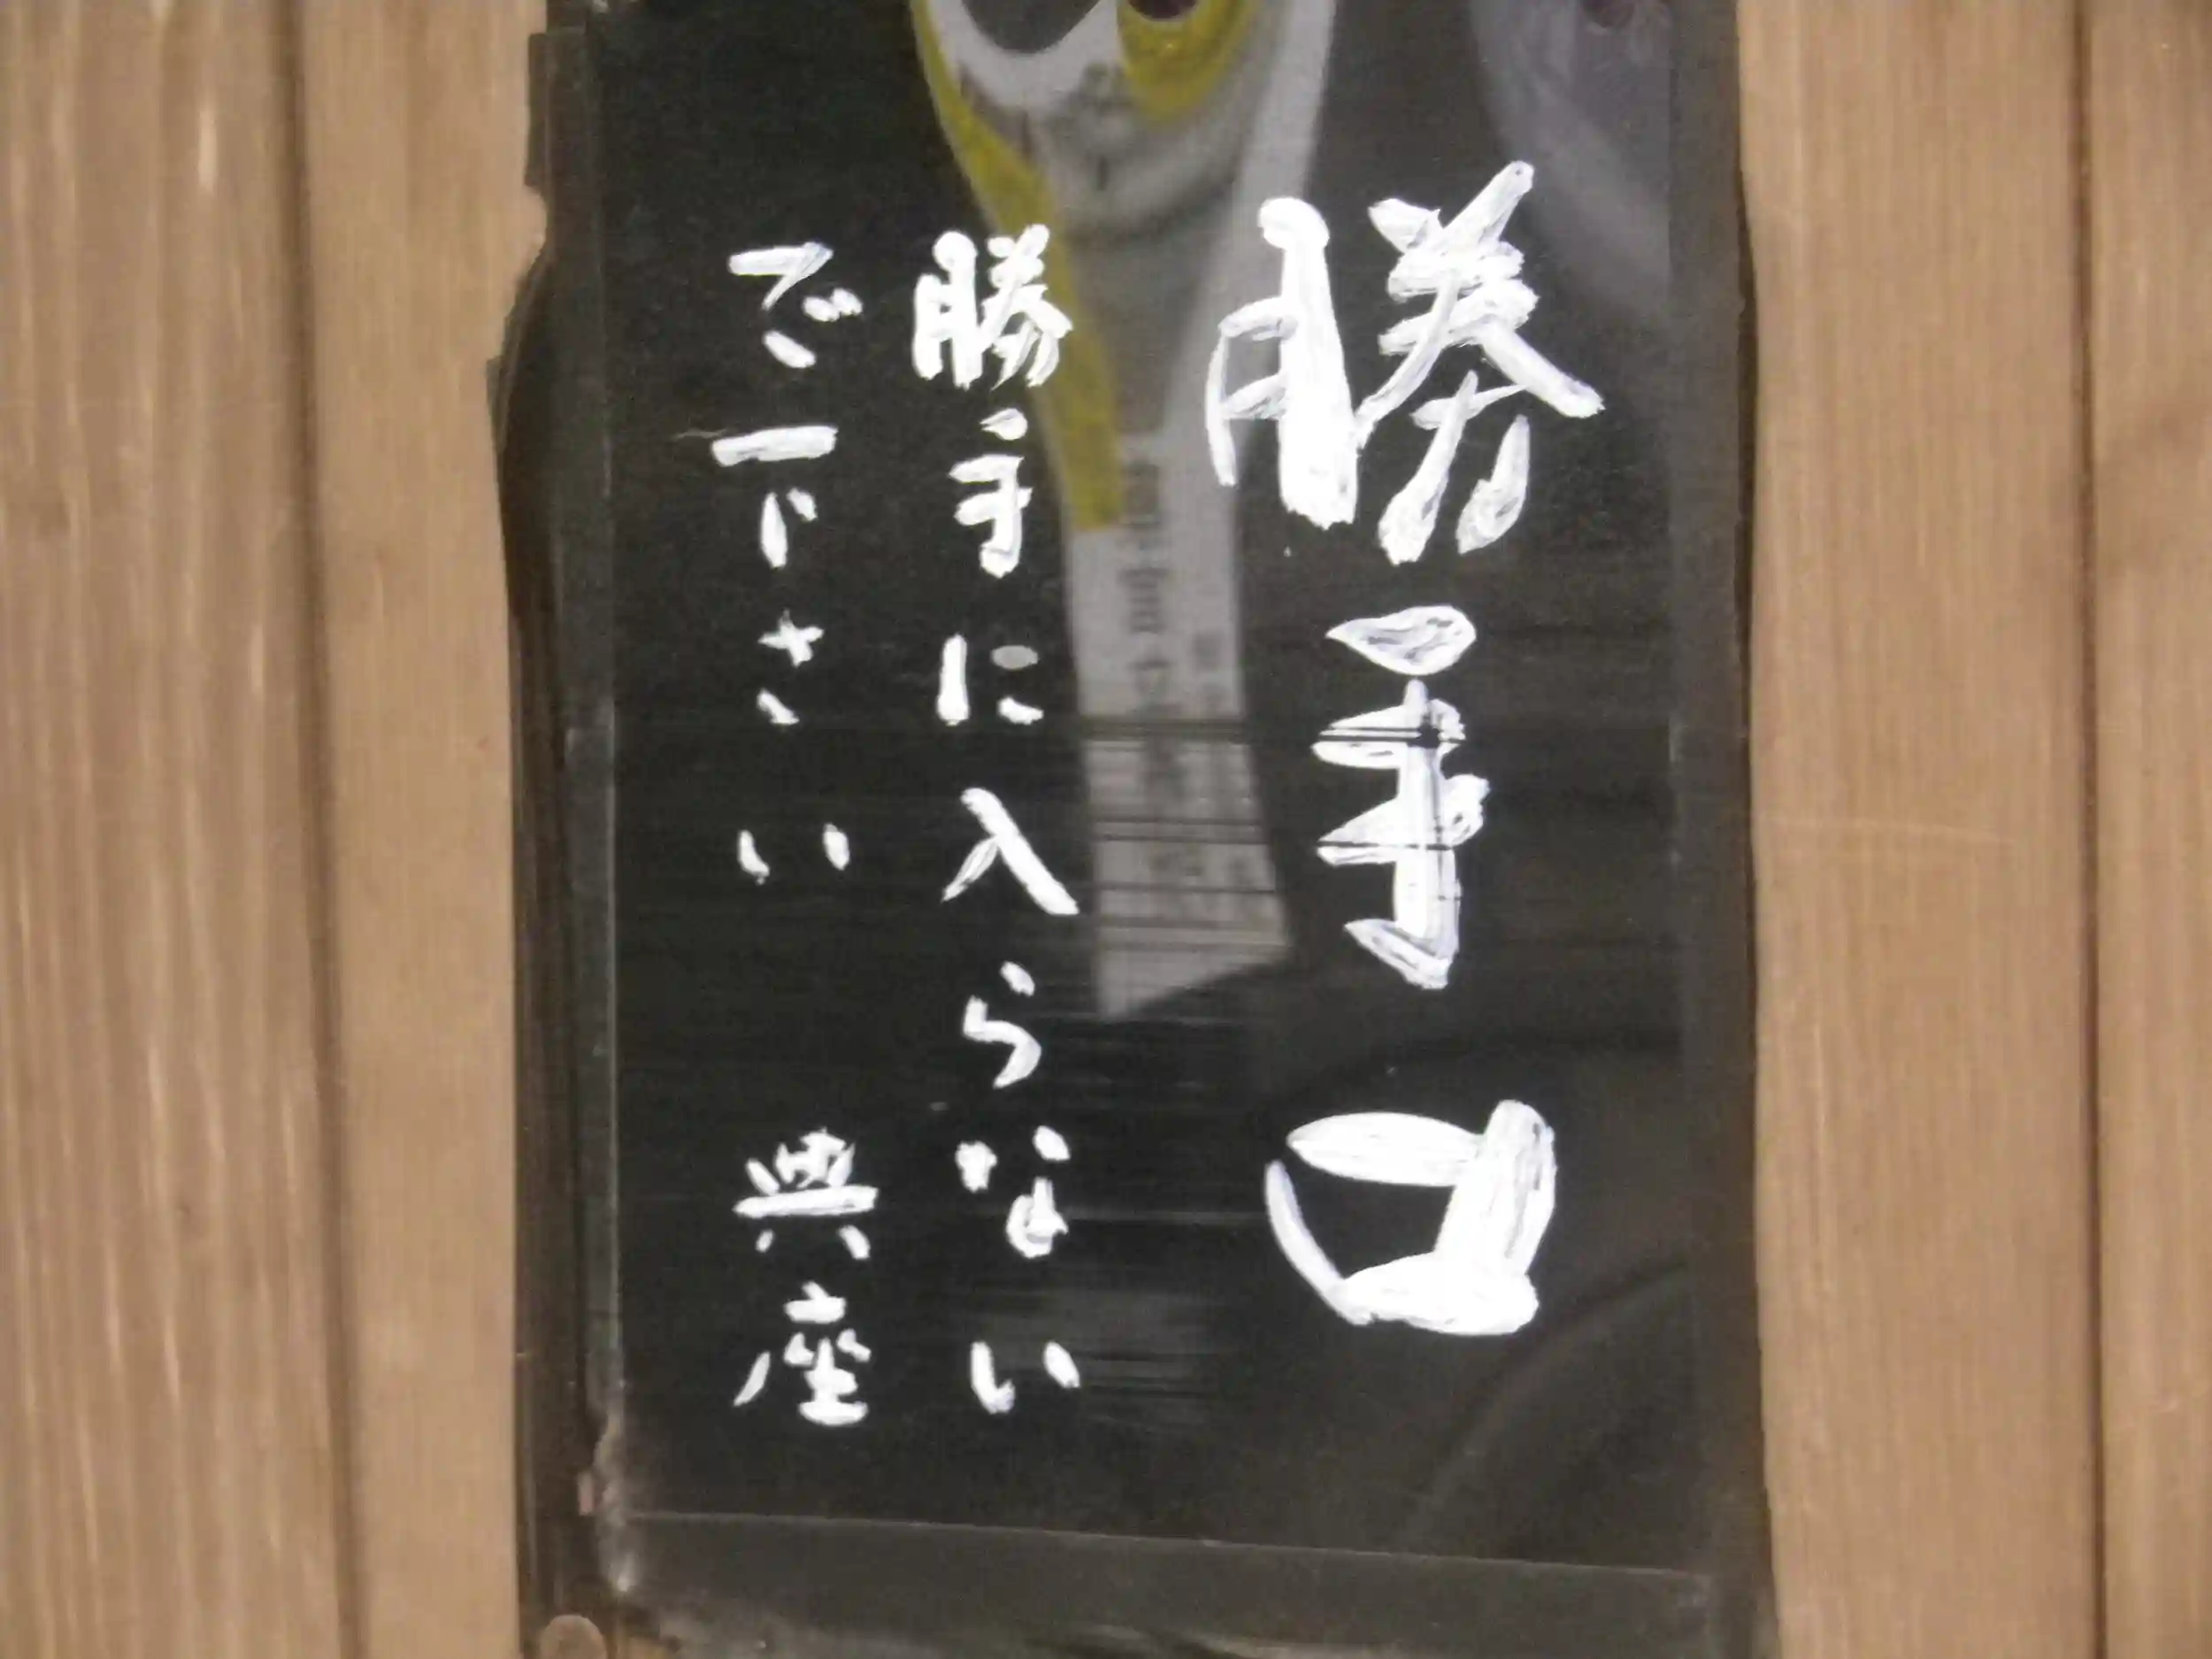 勝手口
勝手に入らない
で下さい 興座